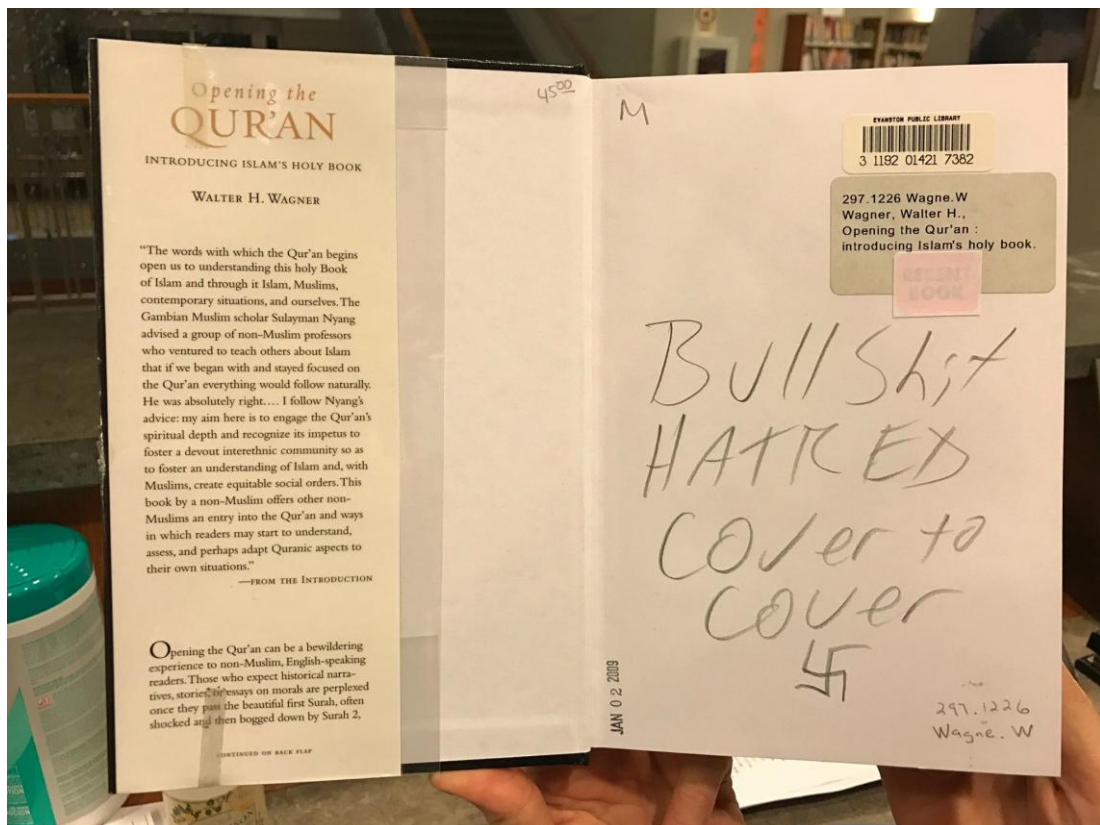 Opening the
QUR'AN
INTRODUCING ISLAM'S HOLY BOOK
WALTER H. WAGNER
"The words with which the Qur'an begins
open us to understanding this holy Book
of Islam and through it Islam, Muslims,
contemporary situations, and ourselves. The
Gambian Muslim scholar Sulayman Nyang
advised a group of non-Muslim professors
who ventured to teach others about Islam
that if we began with and stayed focused on
the Qur'an everything would follow naturally.
He was absolutely right.... I follow Nyang's
advice: my aim here is to engage the Qur'an's
spiritual depth and recognize its impetus to
foster a devout interethnic community so as
to foster an understanding of Islam and, with
Muslims, create equitable social orders. This
book by a non-Muslim offers other non-
Muslims an entry into the Qur'an and ways
in which readers may start to understand,
assess, and perhaps adapt Quranic aspects to
their own situations."
—FROM THE INTRODUCTION
Opening the Qur'an can be a bewildering
experience to non-Muslim, English-speaking
readers. Those who expect historical narra-
tives, stories, or essays on morals are perplexed
once they pass the beautiful first Surah, often
shocked and then bogged down by Surah 2,
CONTINUED ON BACK FLAP
4500
M
EVANSTON PUBLIC LIBRARY
3 1192 01421 7382
297.1226 Wagne.W
Wagner, Walter H.,
Opening the Qur'an :
introducing Islam's holy book.
RECENT
BOOK
Bull Shit
HATRED
Cover to
Cover
JAN 02 2009
297.1226
Wagne. W